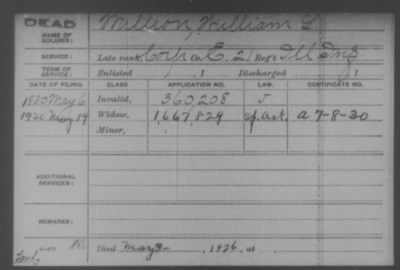 DEAD
NAME OF SOLDIER:
Million, William L
SERVICE:
Late rank Corp Co. E, 21 Reg't Ill Inf
TERM OF SERVICE:
Enlisted , 1 Discharged , 1
DATE OF FILING. CLASS. APPLICATION NO. LAW. CERTIFICATE NO.
1880 May 6 Invalid, 360,208
1926 May 19 Widow, 1,667,829 Sp. act A 7-8-30
Minor,
ADDITIONAL SERVICES:
REMARKS:
Died May , 1926, at